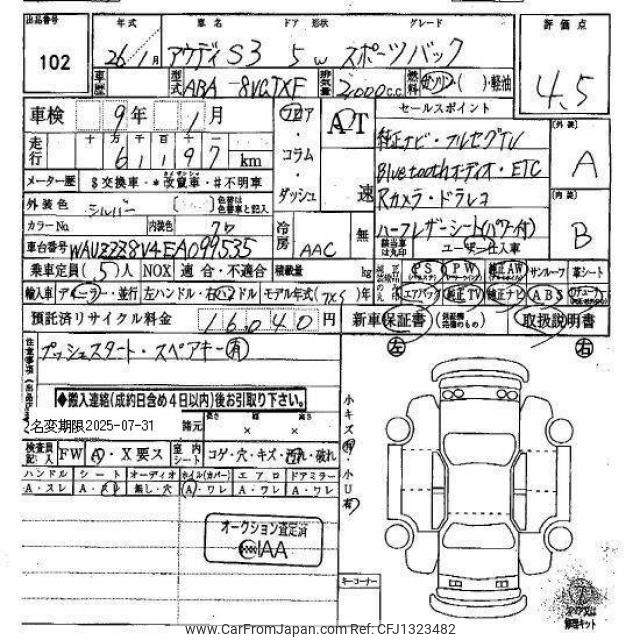 出品番号 年式 車名 ドア 形状 グレード 評価点
102 26/1月 アウディS3 5W スポーツバック 4.5
車歴 型式 ABA-8VCJXF 排気量 2000cc 燃料 ガソリン・( )・軽油
車検 9年 1月 フロア・コラム・ダッシュ AT 速 セールスポイント
走行 十 万 千 百 十 6197 km
純正ナビ・フルセグTV
Bluetoothオーディオ・ETC [外装] A
メーター歴 $交換車・*改竄車・#不明車
Rカメラ・ドラレコ [内装] B
外装色 シルバー ( ) 色替は色替車と記入 冷房 AAC 無
ハーフレザーシート(パワー付)
カラーNo. 内装色 クロ 該当車は丸印 ユーザー仕入車
車台番号 WAUZZZ8V4EA099535
乗車定員 (5)人 NOX 適合・不適合 積載量 kg PS PW 純正AW サンルーフ 革シート
輸入車 ディーラー・並行 左ハンドル・右ハンドル モデル年式( )年 エアバッグ 純正TV 純正ナビ ABS
預託済リサイクル料金 16040 円 新車保証書 取扱説明書
左 右
注意事項 プッシュスタート・スペアキー有
◆搬入連絡(成約日含め4日以内)後お引取り下さい。
名変期限2025-07-31 諸元 長さ 幅 高さ × ×
小キズ有 小U有
検査員記入 FW A・X要ス 室内シート コゲ・穴・キズ・汚れ・破れ
ハンドル シート オーディオ ホイル(カバー) エアロ ドアミラー
A・スレ A・スレ 無し・穴 A・ワレ A・ワレ A・ワレ
オークション査定済
CIAA
キーコーナー
修理キット
www.CarFromJapan.com Ref:CFJ1323482